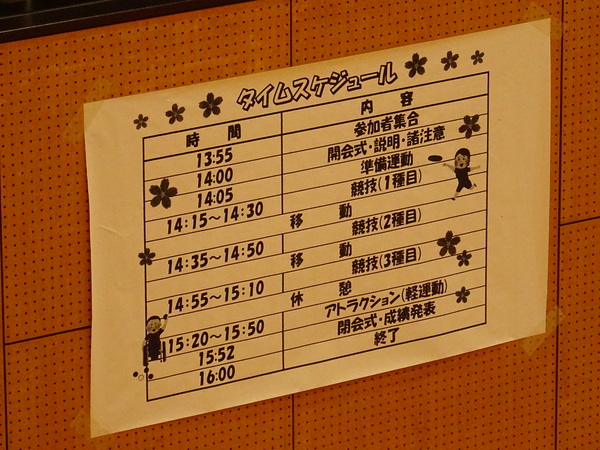 タイムスケジュール
時 間 内 容
13:55 参加者集合
14:00 開会式・説明・諸注意
14:05 準備運動
14:15～14:30 競技(1種目)
移 動
14:35～14:50 競技(2種目)
移 動
14:55～15:10 競技(3種目)
休 憩
15:20～15:50 アトラクション(軽運動)
15:52 閉会式・成績発表
16:00 終了